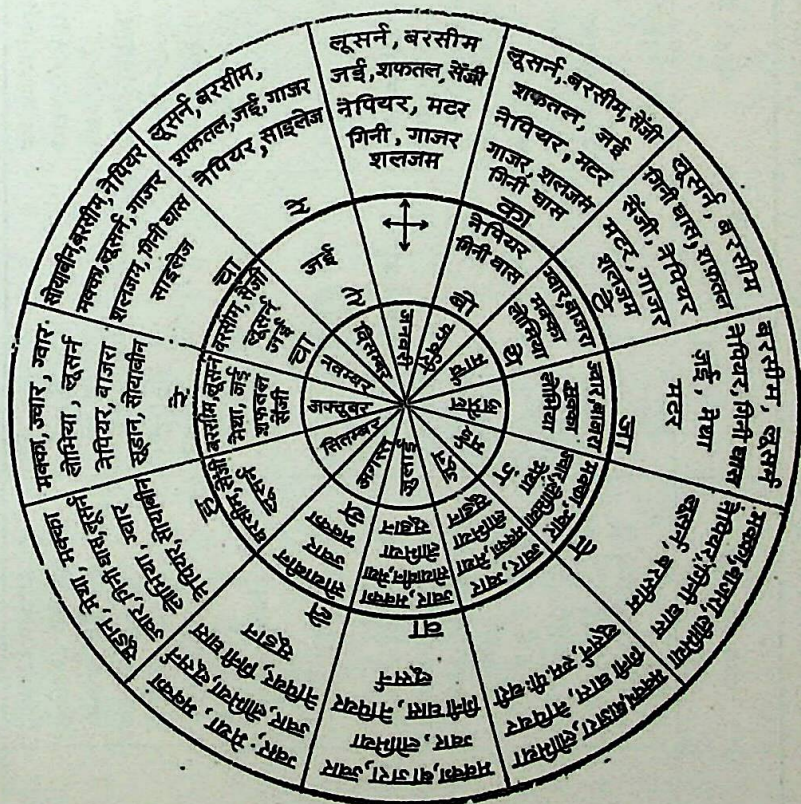 लूसर्न, बरसीम
जई, शफतल, सेंजी
नेपियर, मटर
गिनी, गाजर
शलजम
लूसर्न, बरसीम, सेंजी
शफतल, जई
नेपियर, मटर
गाजर, शलजम
गिनी घास
लूसर्न, बरसीम
गिनी घास, शफतल
सेंजी, नेपियर
मटर, गाजर
शलजम
बरसीम, लूसर्न
नेपियर, गिनी घास
जई, मेथा
मटर
मक्का, बाजरा, लोभिया
नेपियर, गिनी घास
लूसर्न, बरसीम
मक्का, बाजरा, लोभिया
गिनी घास, नेपियर
लूसर्न, एम.पी. चरी
मक्का, बाजरा, ज्वार
ज्वार, लोभिया
गिनी घास, नेपियर
लूसर्न
ग्वार, मेथा, मक्का
ज्वार, लोभिया, लूसर्न
नेपियर, गिनी घास
सूडान
सूडान, मेथा, मक्का
ज्वार, गिनी घास, लूसर्न
लोभिया, ग्वार
नेपियर, सोयाबीन
मक्का, ज्वार, ग्वार
लोभिया, लूसर्न
नेपियर, बाजरा
सूडान, सोयाबीन
सोयाबीन, बरसीम, नेपियर
मक्का, लूसर्न, गाजर
शलजम, गिनी घास
साइलेज
लूसर्न, बरसीम,
शफतल, जई, गाजर
नेपियर, साइलेज
चा
रे
का
जा
ने
वा
नेपियर
गिनी घास
ग्वार, बाजरा
मक्का
लोभिया
ज्वार, बाजरा
मक्का
लोभिया
मक्का, ज्वार
ज्वार, लोभिया
मेथा
ज्वार, ग्वार
मक्का, मेथा
लोभिया
सूडान
ज्वार, मक्का
सोयाबीन, मेथा
लोभिया
सूडान
सोयाबीन
ज्वार
मक्का
बरसीम, सेंजी
लूसर्न
बरसीम, लूसर्न
मेथा, जई
शफतल
सेंजी
बरसीम, सेंजी
लूसर्न
जई
जई
चा
रे
बो
ने
जनवरी
फरवरी
मार्च
अप्रैल
मई
जून
जुलाई
अगस्त
सितम्बर
अक्तूबर
नवम्बर
दिसम्बर